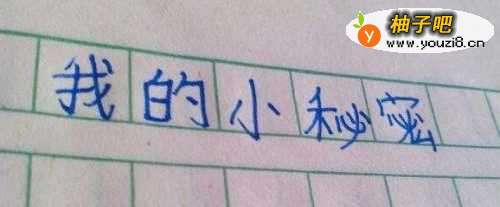 柚子吧
www.youzi8.cn
我的小秘密